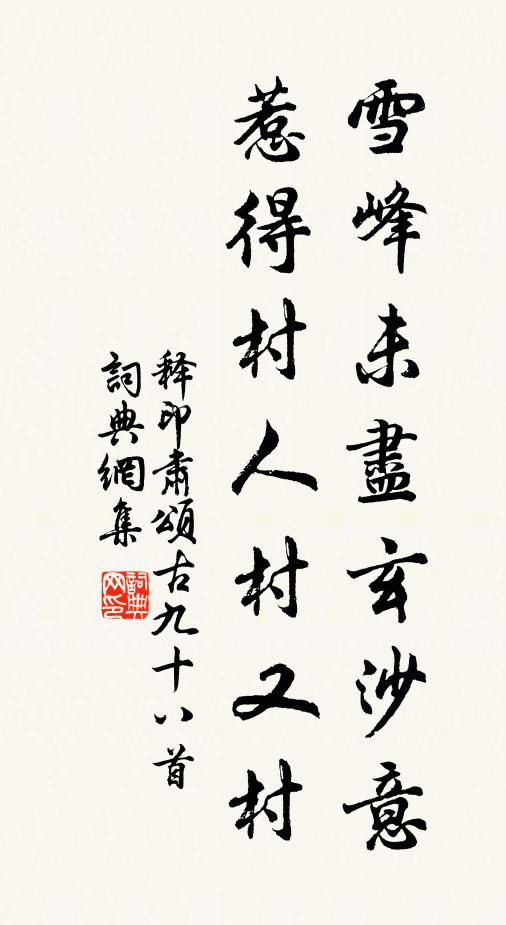 雪峰未盡玄沙意
惹得村人村又村
释印肅頌古九十八首
詞典網集
詞典网印